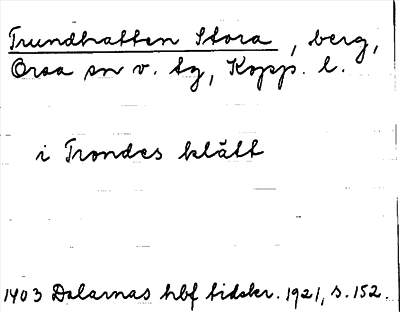 Trundhatten Stora, berg,
Orsa sn v. tg, Kopp. l.
i Trondes klått
1403 Dalarnas hbf tidskr. 1921, s. 152.